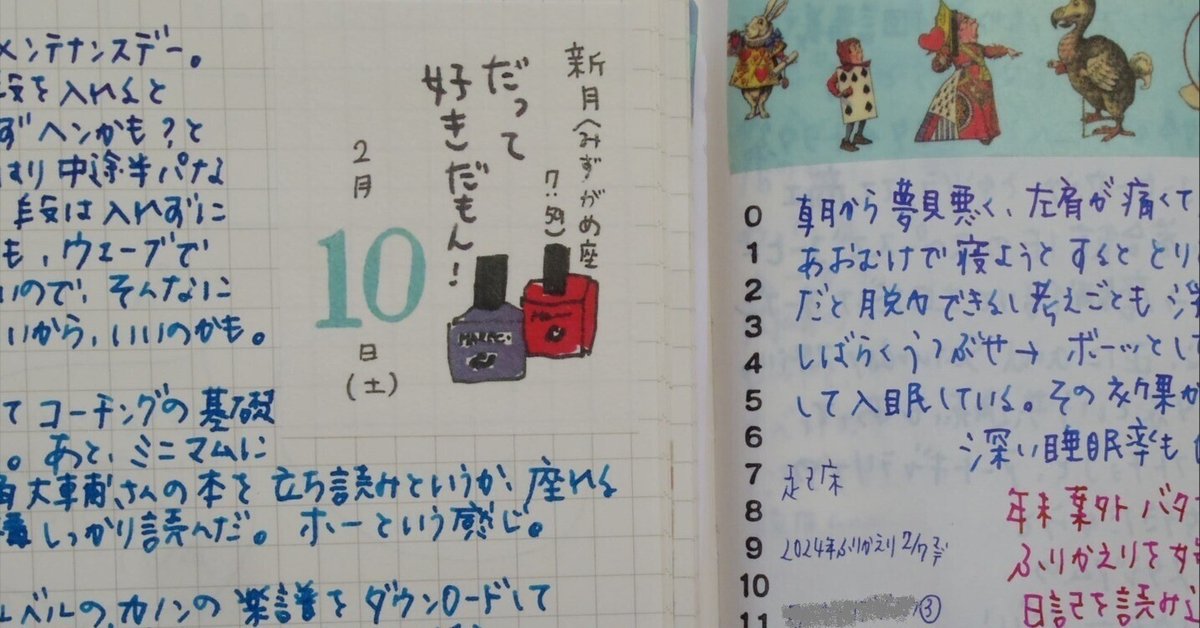 メンテナンスデー。
段を入れると
ずヘンかも?と
はり中途半パな
段は入れずに
も、ウェーブで
いので、そんなに
いから、いいのかも。
てコーチングの基礎
。あと、ミニマムに
さんの本を立ち読みというか、座れる
しっかり読んだ。ホーという感じ。
レベルの、カノンの楽譜をダウンロードして
2月
10
日
(土)
だって
好きだもん!
新月(みずがめ座
7:59)
0
1
2
3
4
5
6
7
8
9
10
11
朝から夢見悪く、左肩が痛くて
あおむけで寝ようとするととり
だと脱力できるし考えごとも深
しばらくうつぶせ→ボーッとし
して入眠している。その効果か
深い睡眠率も
起床
2024年ふりかえり2/7まで
③
年末葉外バタ
ふりかえりを始
日記を読み返